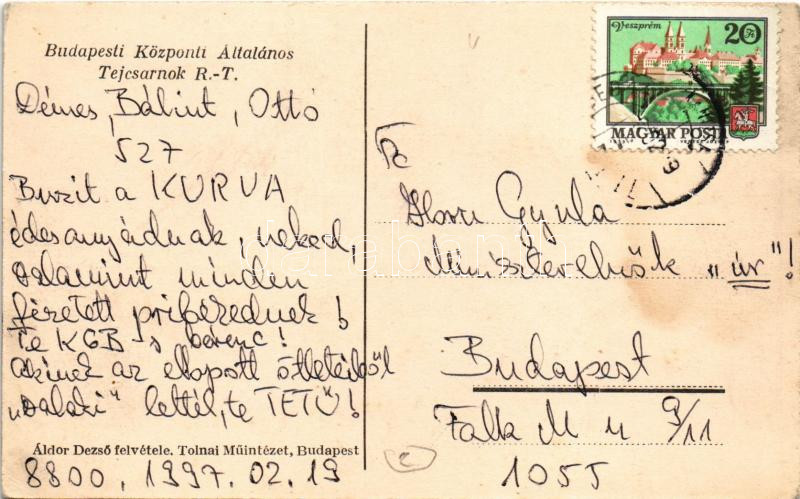 Budapesti Központi Általános
Tejcsarnok R.-T.
Démes, Bálint, Ottó
527
Buzit a KURVA
édesanyádnak, neked,
valamint minden
fizetett pribékednek!
Te KGB-s bérenc!
akinek az ellopott ötleteiből
"valaki" lettél, te TETŰ!
Áldor Dezső felvétele. Tolnai Műintézet, Budapest
8800, 1997. 02. 19
Veszprém
20 Ft
MAGYAR POSTA
Horn Gyula
Miniszterelnök "úr"!
Budapest
Falk M u 9/11
1055
darabanth